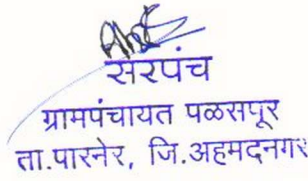 सरपंच
ग्रामपंचायत पळसपूर
ता.पारनेर, जि.अहमदनगर